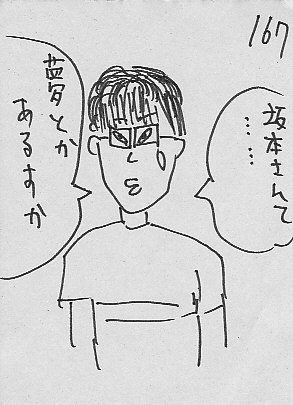 167
坂本さんて
……
夢とか
あるすか